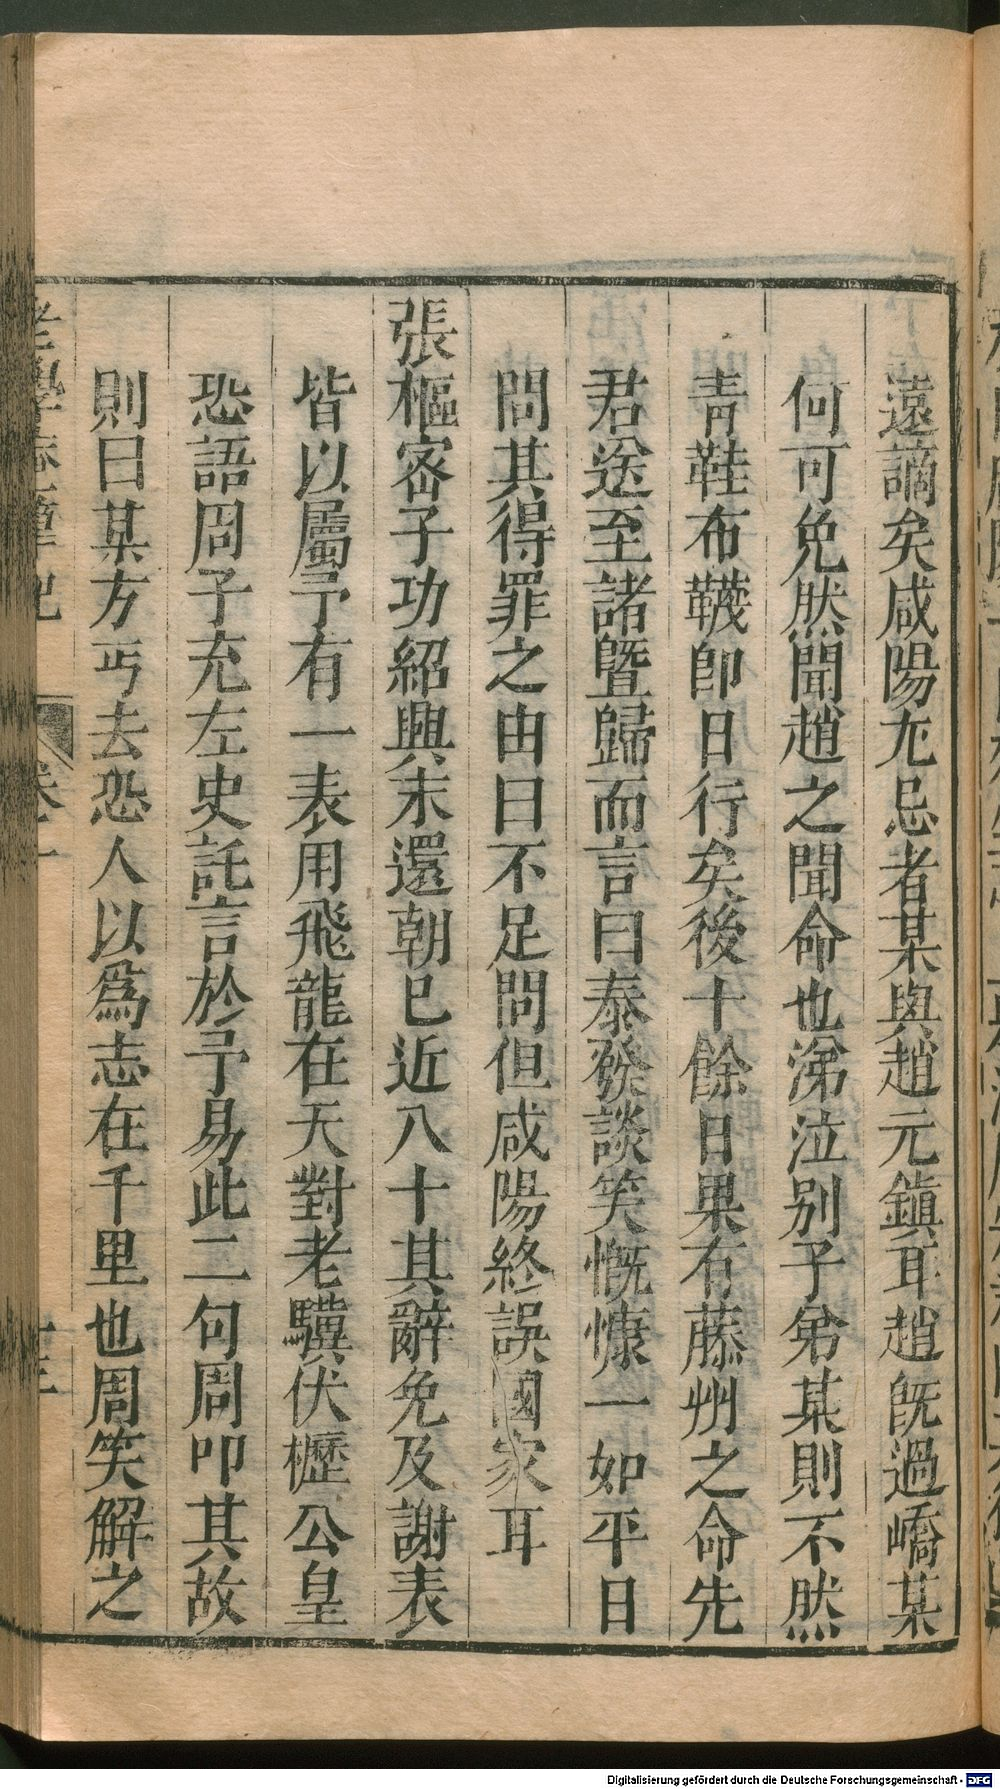 遠謫矣咸陽尤忌者某與趙元鎮耳趙旣過嶠某
何可免然聞趙之聞命也涕泣别子弟某則不然
青鞋布韈卽日行矣後十餘日果有藤州之命先
君送至諸暨歸而言曰泰發談笑慨慷一如平日
問其得罪之由曰不足問但咸陽終誤國家耳
張樞密子功紹興末還朝已近八十其辭免及謝表
皆以屬予有一表用飛龍在天對老驥伏櫪公皇
恐語周子充左史託言於予易此二句周叩其故
則曰某方丐去恐人以爲志在千里也周笑解之
老學菴筆記
卷一
十三
Digitalisierung gefördert durch die Deutsche Forschungsgemeinschaft - DFG